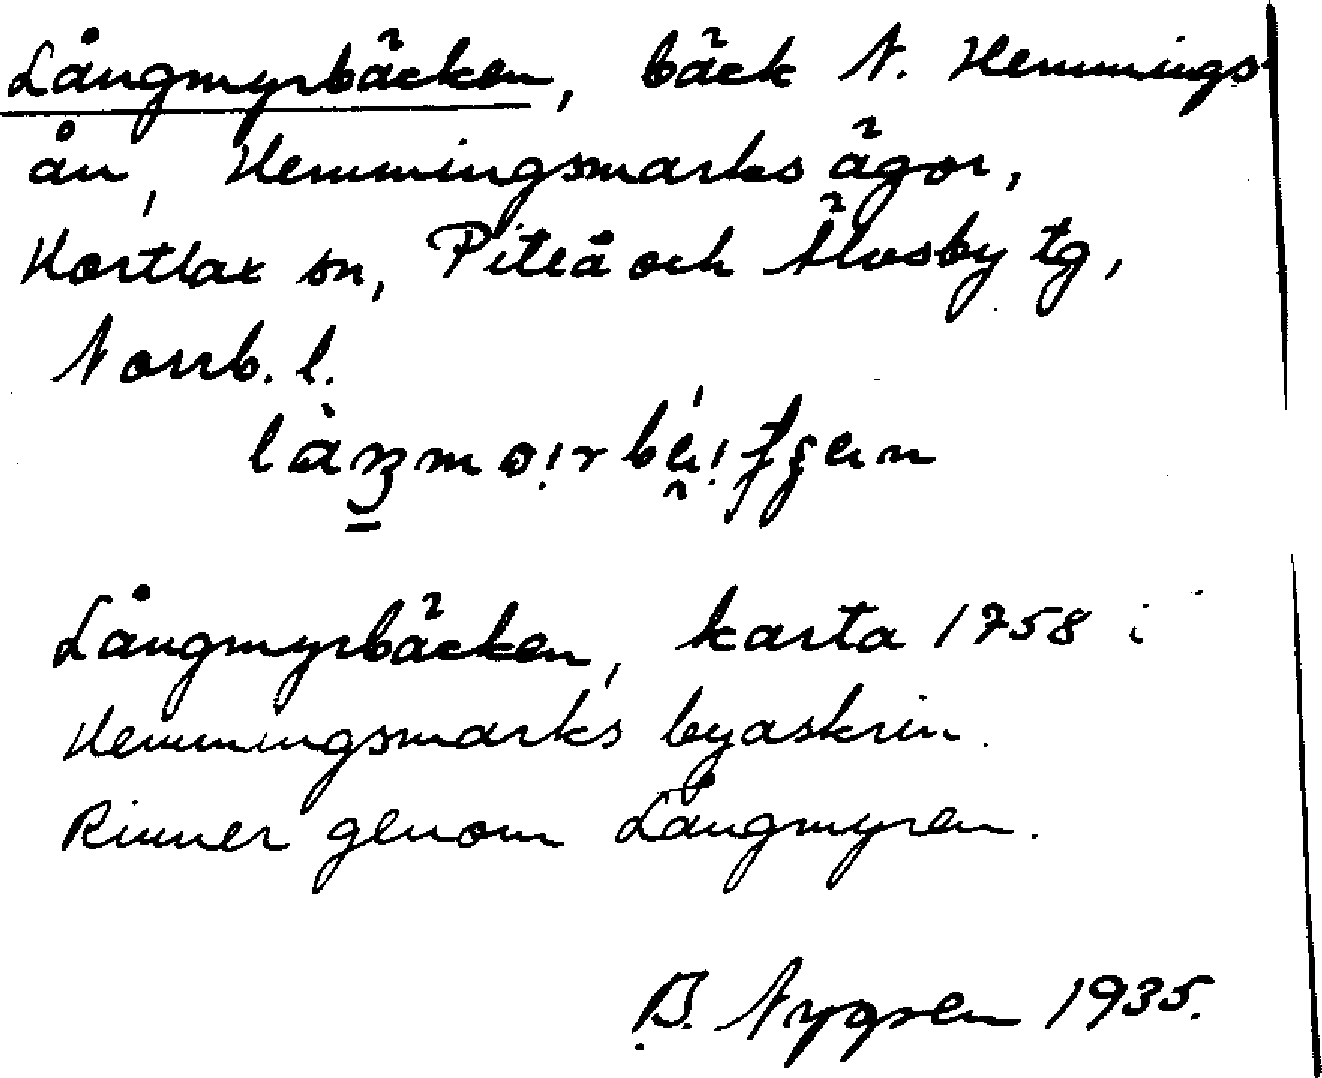 Långmyrbäcken, bäck N. Hemmings-
ån, Hemmingsmarks ägor,
Hortlax sn, Piteå och Älvsby tg,
Norrb. l.
Långmyrbäcken, karta 1758 i
Hemmingsmarks byaskrin.
Rinner genom Långmyren.
B. Nygren 1935.